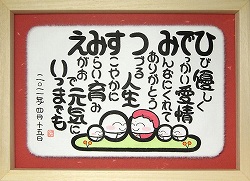 ひび優しく
でっかい愛情
みんなにくれて
ありがとう
つづる人生
すこやかに
みらい育み
えがおで元気に
いつまでも
二〇二一年四月十五日